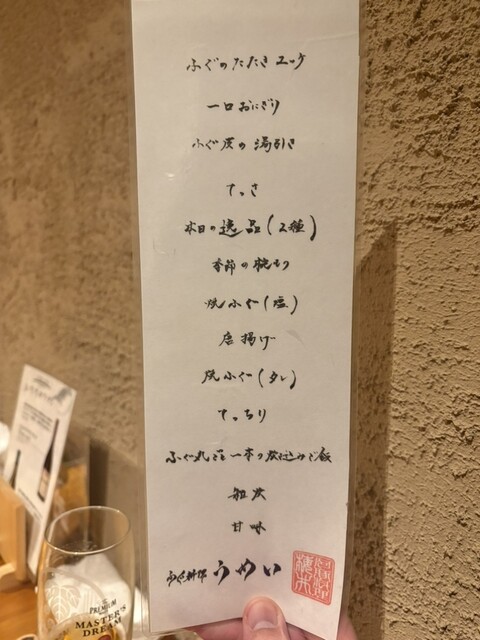 ふぐのたたきユッケ
一口おにぎり
ふぐ皮の湯引き
てっさ
本日の逸品(2種)
季節の椀もの
焼ふぐ(塩)
唐揚げ
焼ふぐ(タレ)
てっちり
ふぐ丸ごと一本の炊き込みご飯
甘味
うめい
The
PREMIUM
MALT'S
MASTER'S
DREAM